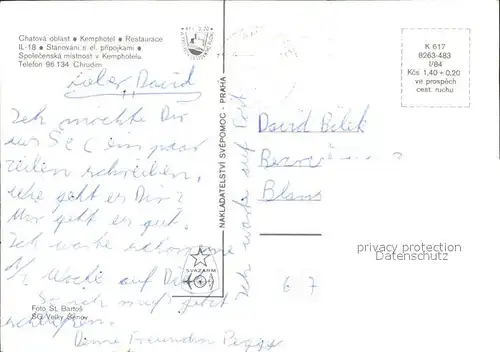 Chatová oblast ● Kemphotel ● Restaurace
IL-18 ● Stanování s el. přípojkami ●
Společenská místnost v Kemphotelu
Telefon 96 134 Chrudim
K 617
8263-483
I/84
Kčs 1,40 + 0,20
ve prospěch
cest. ruchu
Lieber David
Ich möchte Dir
ein paar
zeilen schreiben,
wie geht es Dir?
Mir geht es gut.
Ich warte schon eine
1/2 Woche auf Dich
So ich muß jetzt
Deine Freundin Peggy
Foto St. Bartoš
SG Velký Šenov
NAKLADATELSTVÍ SVÉPOMOC - PRAHA
SVAZARM
Ich warte auf Post
David Bilek
privacy protection
Datenschutz
67